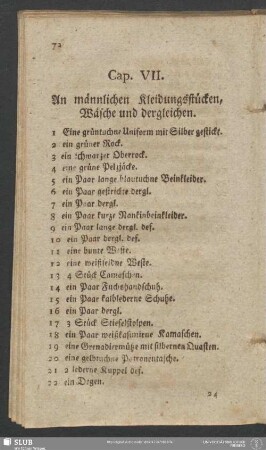 72
Cap. VII.
An männlichen Kleidungsstücken,
Wäsche und dergleichen.
1 Eine grüntuchne Uniform mit Silber gestickt.
2 ein grüner Rock.
3 ein schwarzer Oberrock.
4 eine grüne Pelzjäcke.
5 ein Paar lange blautuchne Beinkleider.
6 ein Paar gestrickte dergl.
7 ein Paar dergl.
8 ein Paar kurze Nankinbeinkleider.
9 ein Paar lange dergl. des.
10 ein Paar dergl. des.
11 eine bunte Weste.
12 eine weißseidne Weste.
13 4 Stück Camaschen.
14 ein Paar Fuchshandschuh.
15 ein Paar kalblederne Schuhe.
16 ein Paar dergl.
17 3 Stück Stiefelstolpen.
18 ein Paar weißkasimirne Kamaschen.
19 eine Grenadiermütze mit silbernen Quasten.
20 eine gelbtuchne Patronentasche.
21 2 lederne Kuppel des.
22 ein Degen.
24
SLUB